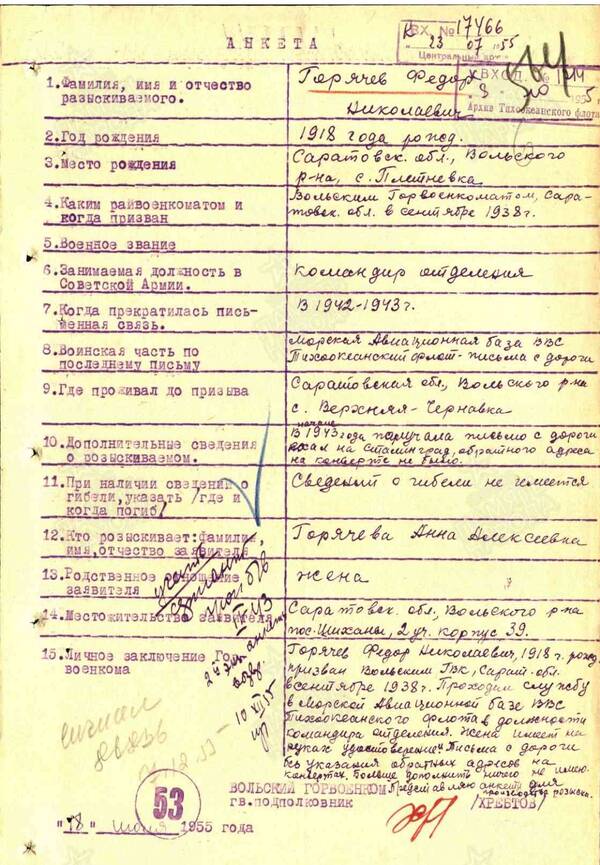 Вх. № 17466
23 07 55
АНКЕТА
ВХОД. №
Архив Тихоокеанского флота
1.Фамилия, имя и отчество разыскиваемого.
Горячев Федор
Николаевич
2.Год рождения
1918 года рожд.
3.Место рождения
Саратовск. обл., Вольского
р-на, с. Плетневка
4.Каким райвоенкоматом и
когда призван
Вольским Горвоенкоматом, Сара-
товск. обл. в сентябре 1938 г.
5.Военное звание
6.Занимаемая должность в
Советской Армии.
командир отделения
7.Когда прекратилась пись-
менная связь.
В 1942-1943 г.
8.Воинская часть по
последнему письму
Морская Авиационная база ВВС
Тихоокеанский флот - письма с дороги
9.Где проживал до призыва
Саратовская обл., Вольского р-на
с. Верхняя-Чернавка
10.Дополнительные сведения
о розыскиваемом.
начале
В 1943 года получала письмо с дороги
ехал на Сталинград, обратного адреса
на конверте не было.
11.При наличии сведений о
гибели, указать /где и
когда погиб/
Сведений о гибели не имеется
12.Кто розыскивает:фамилия,
имя,отчество заявителя
Горячева Анна Алексеевна
13.Родственное отношение
заявителя
жена
14.Местожительство заявителя
Саратовск. обл., Вольского р-на
пос. Шиханы, 2 уч. корпус 39.
15.Личное заключение Гор
военкома
Горячев Федор Николаевич, 1918 г. рожд.
призван Вольским ГВК, Сарат. обл.
в сентябре 1938 г. Проходил службу
в Морской Авиационной базе ВВС
Тихоокеанского флота в должности
командира отделения. Жена имеет на
руках удостоверение. Письма с дороги
без указания обратных адресов на
конвертах. Больше дополнить ничего не имею.
Представляю анкету для
производства розыска.
ВОЛЬСКИЙ ГОРВОЕНКОМ
гв.подполковник
/ХРЕБТОВ/
53
"18" июля 1955 года